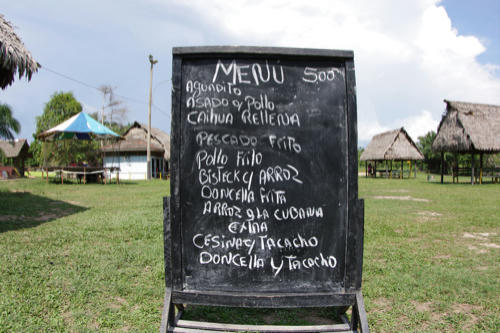 MENÚ 500
AGUADITO
ASADO y POLLO
CAIHUA RELLENA
PESCADO FRITO
POLLO FRITO
BISTECK y ARROZ
DONCELLA FRITA
ARROZ a LA CUBANA
EXTRA
CESINA y TACACHO
DONCELLA y TACACHO